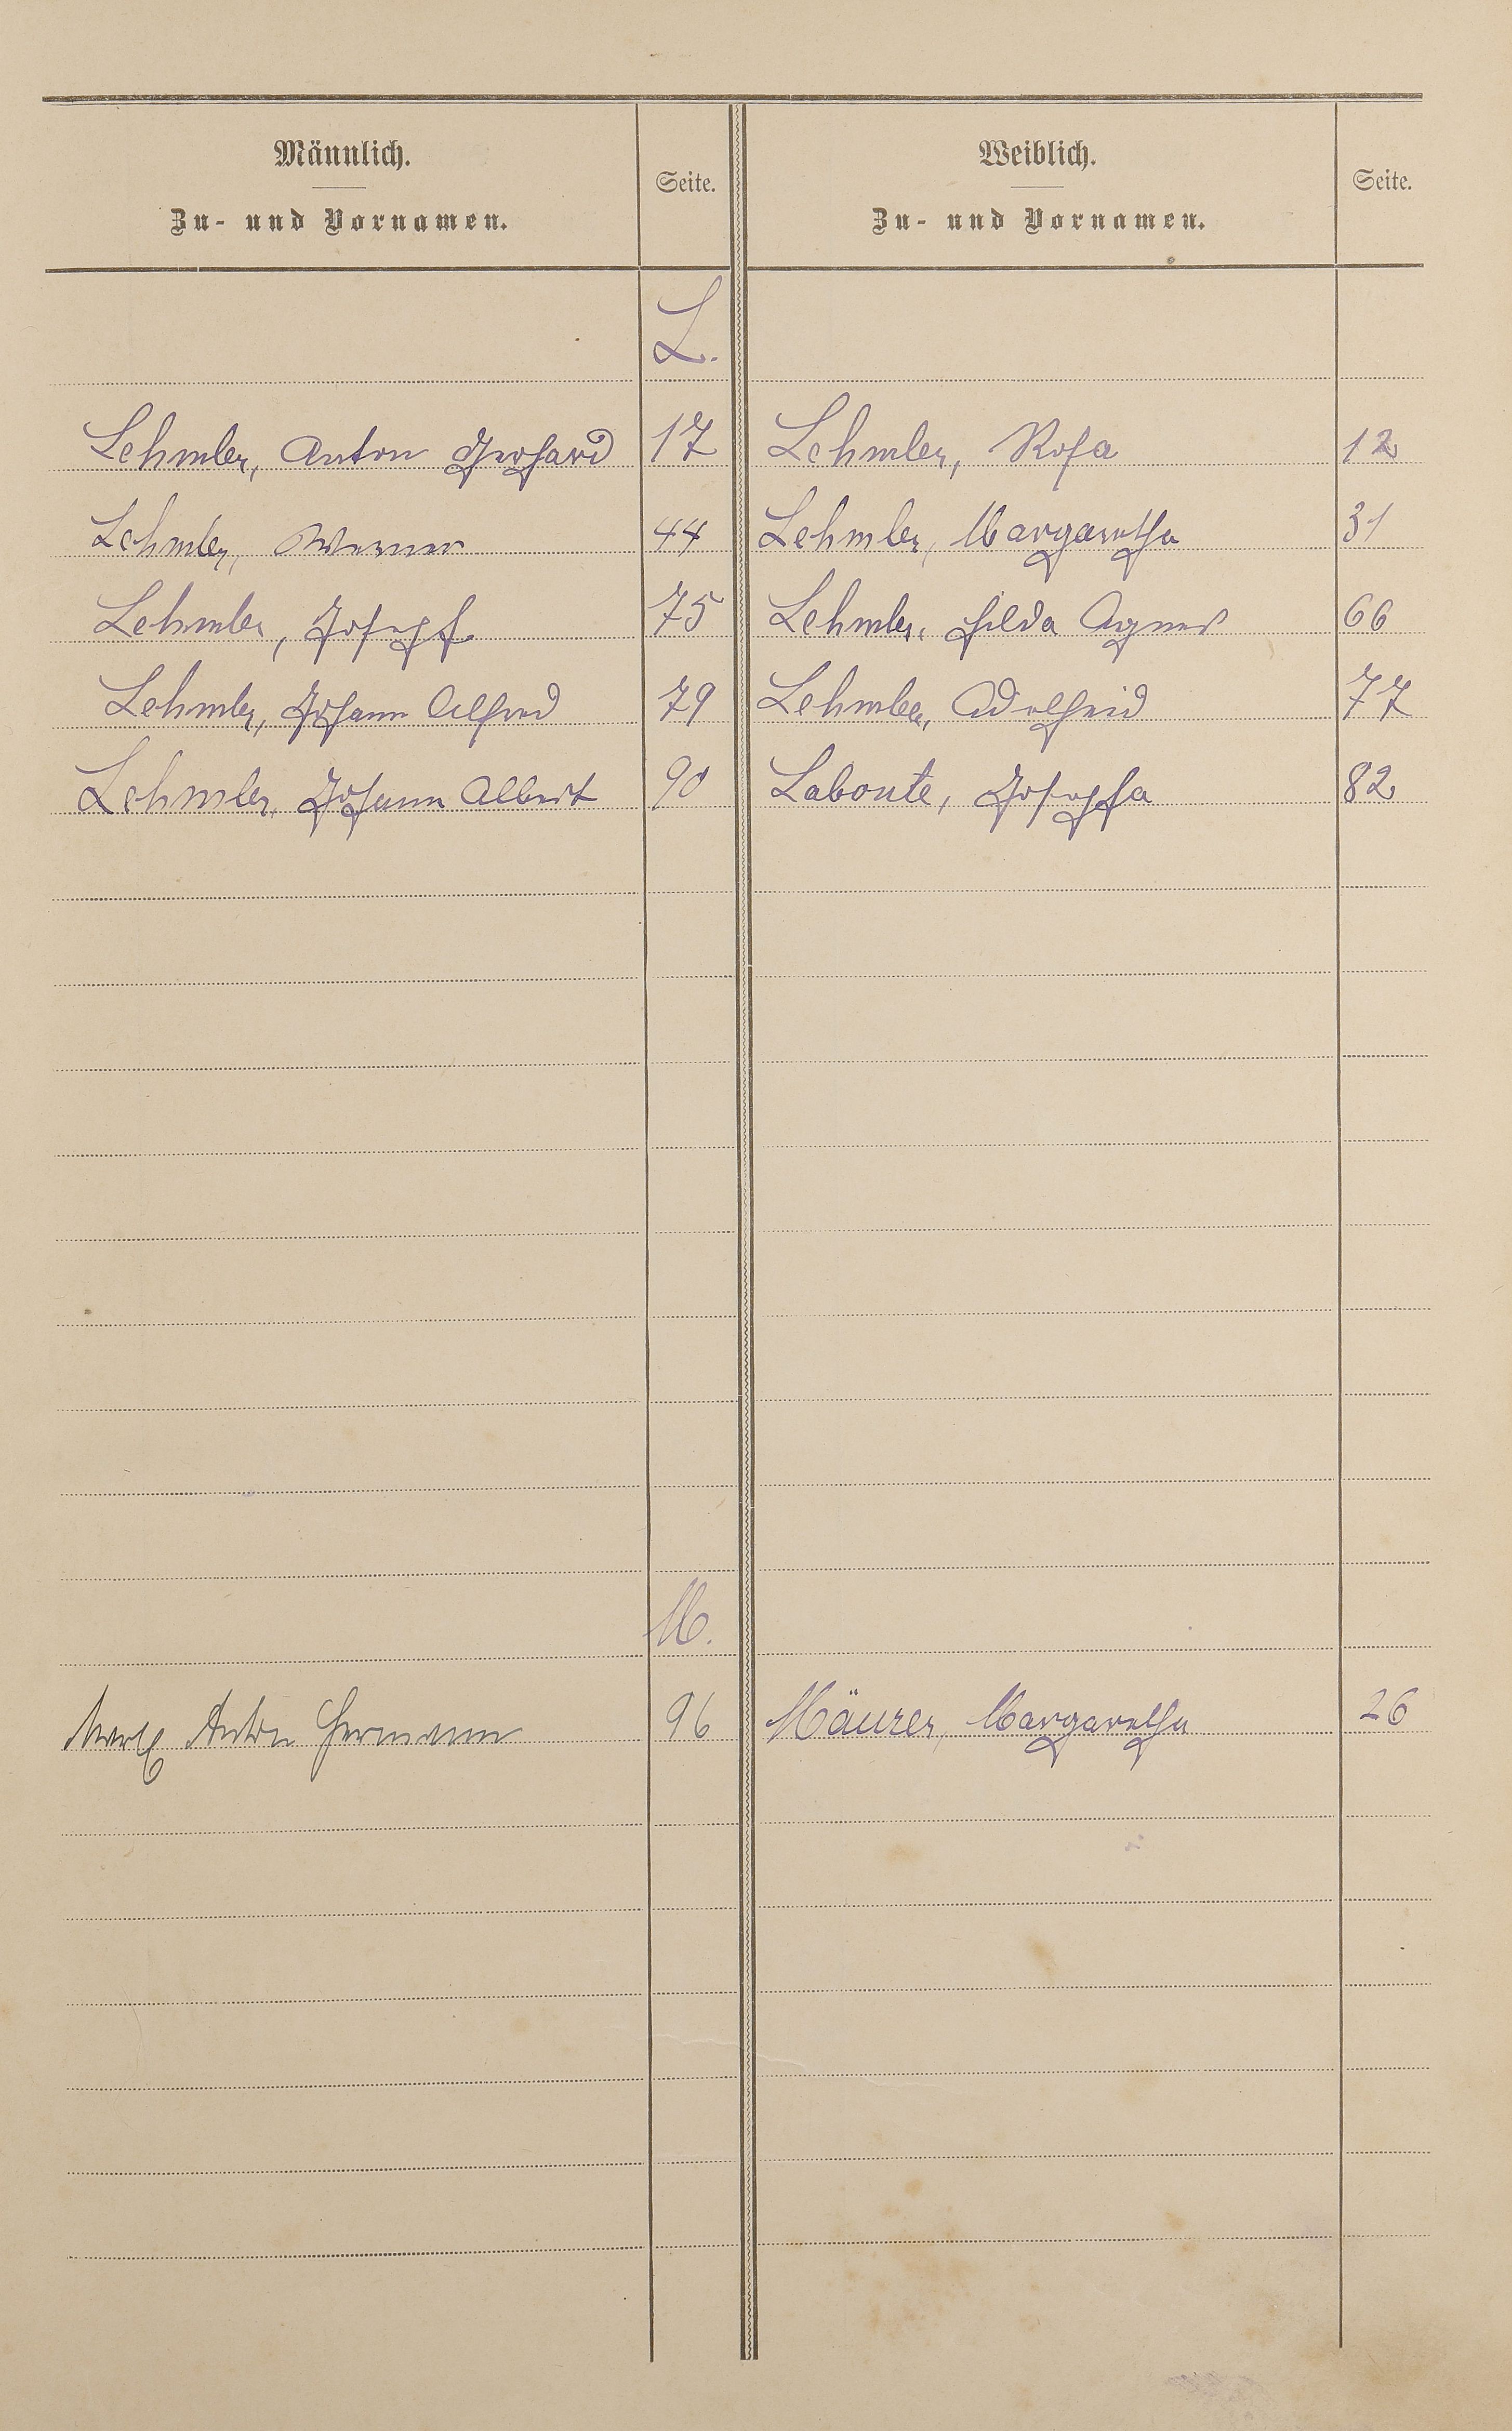 Männlich.
Zu- und Vornamen.
Seite.
Weiblich.
Zu- und Vornamen.
Seite.
L.
Lehmler, Anton Gerhard 17 Lehmler, Rosa 12
Lehmler, Werner 44 Lehmler, Margaretha 31
Lehmler, Joseph 75 Lehmler, Hilda Agnes 66
Lehmler, Johann Alfred 79 Lehmler, Adelheid 77
Lehmler, Johann Albert 90 Labonte, Josepha 82
M.
Anton Hermann 96 Mäurer, Margaretha 26